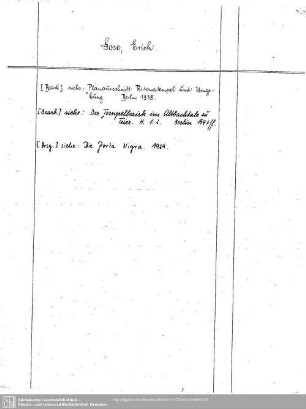 Gose, Erich.
[Bearb.] siehe: Planausschnitt Palmatempel und Umge-
bung Berlin 1938.
[Bearb.] siehe: Der Tempelbezirk im Altbachtale zu
Trier. H. 1.2. Berlin
[Hrsg.] siehe: Die Porta Nigra. 1969.
Sächsische Landesbibliothek -
Staats- und Universitätsbibliothek Dresden